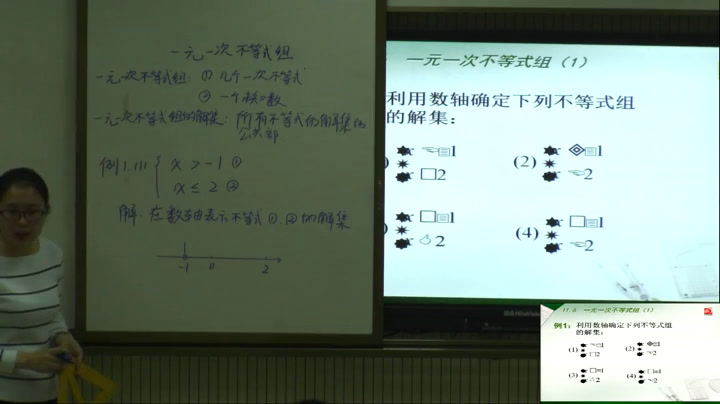 一元一次不等式组
一元一次不等式组: ① 几个一次不等式
② 一个未知数
一元一次不等式组的解集: 所有不等式的解集的
公共部
例1.(1) { x > -1 ①
x ≤ 2 ②
解: 在数轴表示不等式①、②的解集
-1 0 2
一元一次不等式组（1）
利用数轴确定下列不等式组
的解集：
1
(2) 1
2
2
1
(4) 1
2
2
11.6 一元一次不等式组（1）
例1: 利用数轴确定下列不等式组
的解集：
(1) 1
2
(2) 1
2
(3) 1
2
(4) 1
2